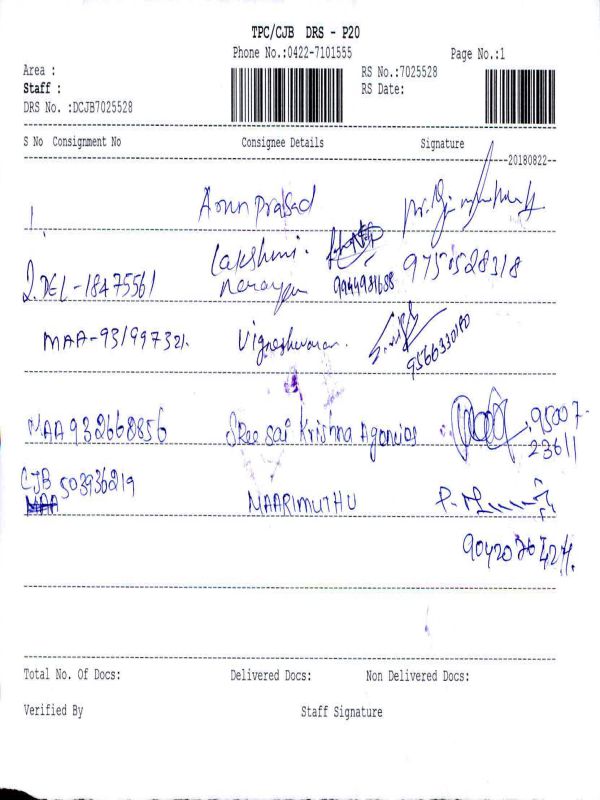 TPC/CJB DRS - P20
Phone No.:0422-7101555
Page No.:1
Area :
RS No.:7025528
Staff :
RS Date:
DRS No. :DCJB7025528
S No Consignment No Consignee Details Signature
20180822
1. Arun Prasad
Lakshmi.
2. DEL-18475561 Narayan 9944981688 9751528318
MAA-931997321. Vigneshwaran. 9566330180
MAA 932668856 Sree Sai Krishna Agencies 95007-
23611
CJB 503936219
MAA MAARIMUTHU
Total No. Of Docs: Delivered Docs: Non Delivered Docs:
Verified By Staff Signature